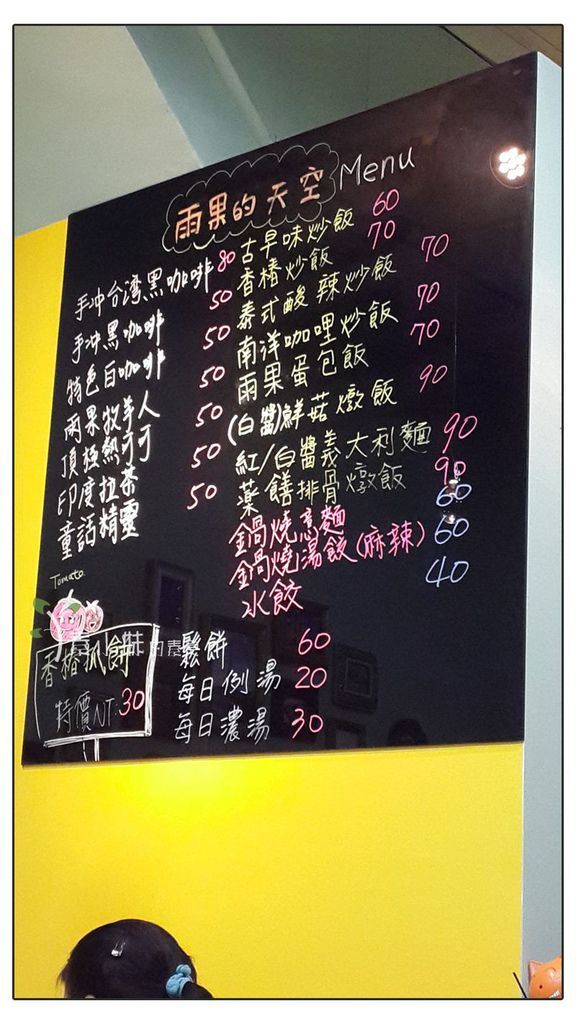 雨果的天空 Menu
手冲台湾黑咖啡 80
手冲黑咖啡 50
特色白咖啡 50
雨果牧羊人 50
頂極熱可可 50
印度拉茶 50
童話精靈 50
古早味炒飯 60
香椿炒飯 70
泰式酸辣炒飯 70
南洋咖哩炒飯 70
雨果蛋包飯 70
(白醬)鮮菇燉飯 90
紅/白醬義大利麵 90
藥膳排骨燉飯 90
鍋燒意麵 60
鍋燒湯餃(麻辣) 60
水餃 40
Tomato
香椿抓餅
特價NT.30
鬆餅 60
每日例湯 20
每日濃湯 30